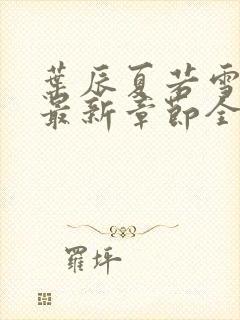 葉辰夏若雪
最新章節全
羅坪